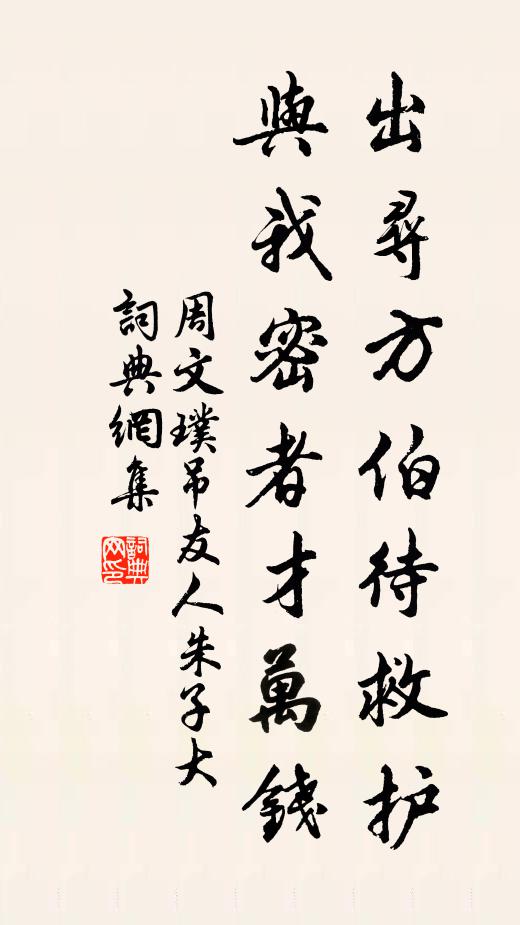 出尋方伯待救护
與我密者才萬錢
周文璞吊友人朱子大
詞典網集
詞典网印